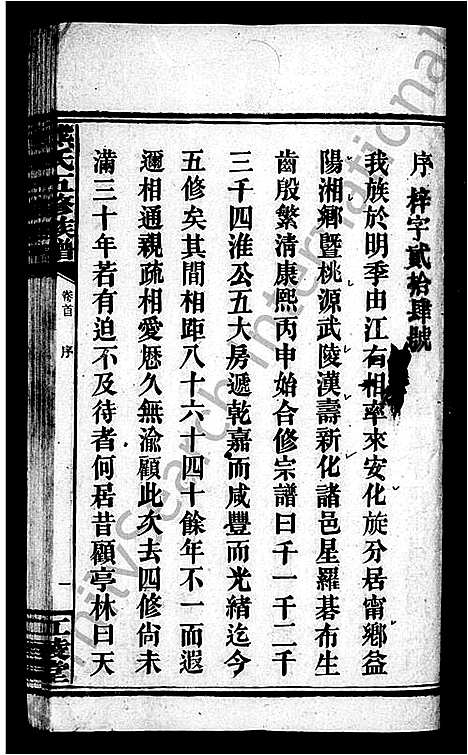 序 梓字貳拾肆號
我族於明季由江右相率來安化旋分居甯鄉益
陽湘鄉暨桃源武陵漢壽新化諸邑星羅碁布生
齒殷繁清康熙丙申始合修宗譜曰千一千二千
三千四淮公五大房遞乾嘉而咸豐而光緒迄今
五修矣其間相距八十六十四十餘年不一而遐
邇相通親疏相愛厯久無渝顧此次去四修尙未
滿三十年若有迫不及待者何居昔顧亭林曰天
熊氏五修族譜
卷首 序
一
堂
FamilySearch International